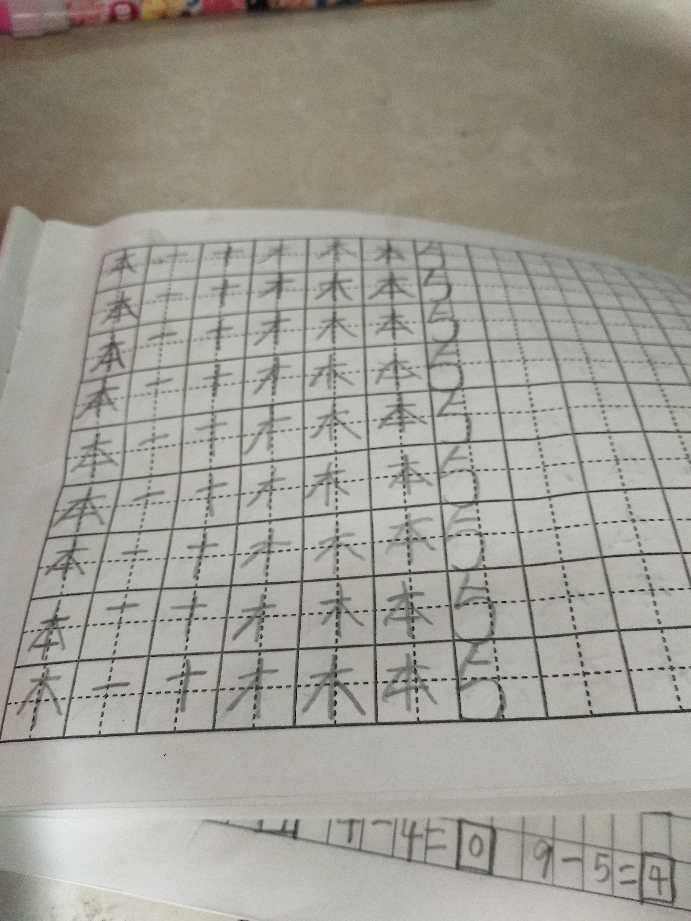 本 一 十 才 木 本 5
本 一 十 才 木 本 5
本 一 十 才 木 本 5
本 一 十 才 木 本 5
本 一 十 才 木 本 5
本 一 十 才 木 本 5
本 一 十 才 木 本 5
本 一 十 才 木 本 5
木 一 十 才 木 本 5
4-4=0 9-5=4